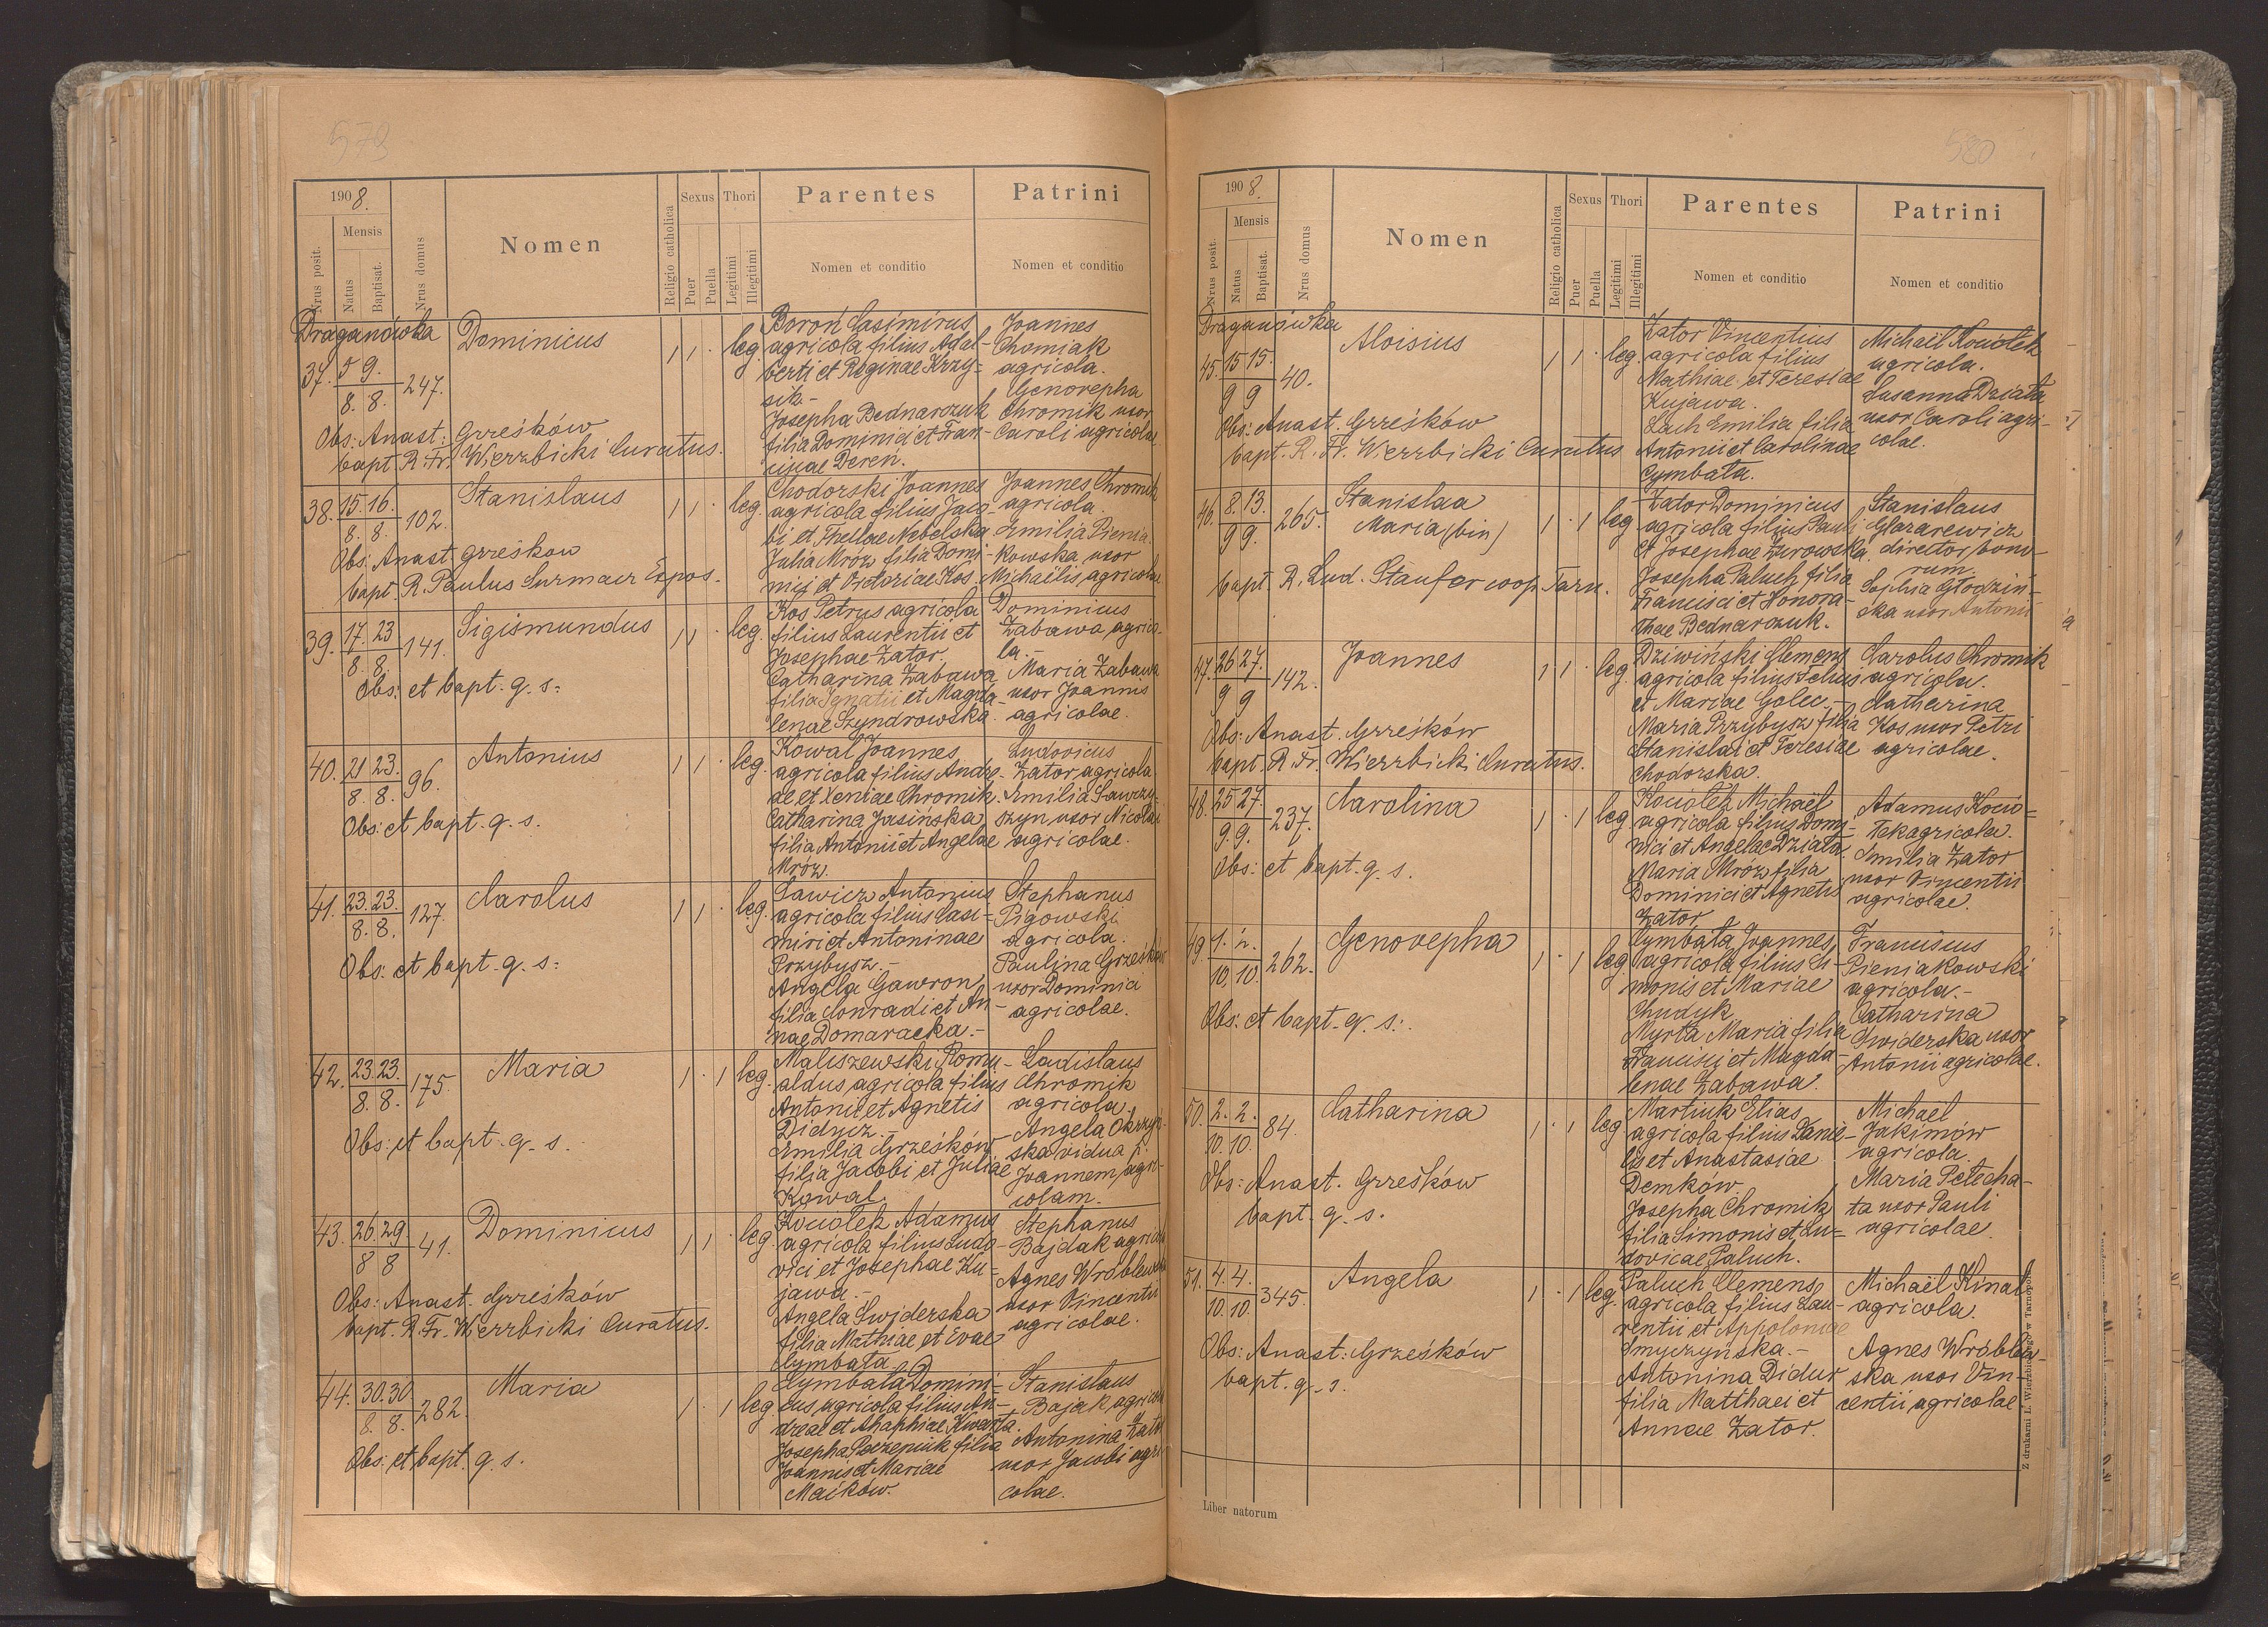 579
1908.
Nrus posit.
Mensis
Natus
Baptisat.
Nrus domus
Nomen
Religio catholica
Sexus
Puer
Puella
Thori
Legitimi
Illegitimi
Parentes
Nomen et conditio
Patrini
Nomen et conditio
Draganówka
37. 5 9. 247.
8. 8.
Dominicus
1 1 . leg
Boroń Casimirus
agricola filius Adal-
berti et Reginae Krzy-
sik.-
Josepha Bednarczuk
filia Dominici et Fran-
ciscae Dereń.
Joannes
Chomiak
agricola.
Genovepha
Chromik uxor
Caroli agricolae.
Obs: Anast: Grześków
bapt. R. Fr. Wierzbicki Curatus.
38. 15. 16. 102.
8. 8.
Stanislaus
1 1 . leg.
Chodorski Joannes
agricola filius Jaco-
bi et Theclae Nebelska
Julia Mróz filia Domi-
nici et Victoriae Kos.
Joannes Chromik
agricola.
Emilia Pienia-
kowska uxor
Michaëlis agricolae
Obs: Anast Grześkow
bapt. R. Paulus Surmacz Expos.
39. 17. 23 141.
8. 8.
Sigismundus
1 1 . leg.
Kos Petrus agricola
filius Laurentii et
Josephae Zator.
Catharina Zabawa
filia Ignatii et Magda-
lenae Szyndrowska.
Dominicus
Zabawa agrico-
la.-
Maria Zabawa
uxor Joannis
agricolae.
Obs: et bapt. q. s:
40. 21 23. 96.
8. 8.
Antonius
1 1 . leg.
Kowal Joannes
agricola filius Andre-
ae et Xeniae Chromik.
Catharina Jasińska
filia Antonii et Angelae
Mróz.
Ludovicus
Zator agricola
Emilia Ławrzy-
szyn uxor Nicolai
agricolae.
Obs: et bapt. q. s.
41. 23. 23. 127.
8. 8.
Carolus
1 1 . leg.
Sawicz Antonius
agricola filius Casi-
miri et Antoninae
Przybysz.-
Angela Gawron
filia Conradi et An-
nae Domaracka.-
Stephanus
Pigowski
agricola.
Paulina Grześków
uxor Dominici
agricolae.
Obs: et bapt. q. s:
42. 23. 23. 175.
8. 8.
Maria
1 . 1 leg.
Maliszewski Romu-
aldus agricola filius
Antonii et Agnetis
Didycz.-
Emilia Grześków
filia Jacobi et Juliae
Kowal.
Ladislaus
Chromik
agricola.
Angela Okrzyn-
ska vidua p.
Joannem agri-
colam.
Obs: et bapt. q. s.
43. 26. 29. 41.
8 8
Dominicus
1 1 . leg.
Kociołek Adamus
agricola filius Ludo-
vici et Josephae Ku-
jawa.-
Angela Swiderska
filia Mathiae et Evae
Cymbała
Stephanus
Bajdak agricola
Agnes Wróblewska
uxor Vincentii
agricolae.
Obs: Anast. Grześków
bapt. R. Fr. Wierzbicki Curatus.
44. 30. 30 282.
8. 8.
Maria
1 . 1 leg
Cymbała Domini-
cus agricola filius An-
dreae et Ahaphiae Kwarta.
filia
Joannis et Mariae
Maików.
Stanislaus
Bajak agricola
Antonina Zator
uxor Jacobi agri-
colae.
Obs: et bapt. q. s.
580
1908.
Nrus posit.
Mensis
Natus
Baptisat.
Nrus domus
Nomen
Religio catholica
Sexus
Puer
Puella
Thori
Legitimi
Illegitimi
Parentes
Nomen et conditio
Patrini
Nomen et conditio
Draganówka
45. 15 15. 40.
9 9
Aloisius
1 1 . leg.
Zator Vincentius
agricola filius
Mathiae et Teresiae
Kujawa.
Lach Emilia filia
Antonii et Carolinae
Cymbała.
Michaël Kociołek
agricola.
Susanna Działa
uxor Caroli agri-
colae.
Obs: Anast. Grześków
bapt. R. Fr. Wierzbicki Curatus
46. 8. 13. 265.
9 9.
Stanislaa
Maria (bin)
1 . 1 leg
Zator Dominicus
agricola filius Pauli
et Josephae Żurowska.
Josepha Paluch filia
Francisci et Honora-
thae Bednarczuk.
Stanislaus
Głazarewicz
director bono-
rum.
Sophia Głodziń-
ska uxor Antonii
bapt. R. Lud. Staufer coop. Tarn.
47. 26 27. 142.
9 9
Joannes
1 1 . leg.
Dziwiński Clemens
agricola filius Felicis
et Mariae Golec.-
Maria Przybysz filia
Stanislai et Teresiae
Chodorska.
Carolus Chromik
agricola.
Catharina
Kos uxor Petri
agricolae.
Obs: Anast. Grześków
bapt. R. Fr. Wierzbicki Curatus.
48. 25 27. 237.
9. 9.
Carolina
1 . 1 leg
Kociołek Michaël
agricola filius Domi-
nici et Angelae Działa.
Maria Mróz filia
Dominici et Agnetis
Zator
Adamus Kocio-
łek agricola.
Emilia Zator
uxor Vincentii
agricolae.
Obs: et bapt. q. s.
49. 1. 2. 262.
10. 10.
Genovepha
1 . 1 leg
Cymbała Joannes
agricola filius Si-
monis et Mariae
Chudyk
Myrta Maria filia
Francisci et Magda-
lenae Zabawa.
Franciscus
Pieniakowski
agricola.-
Catharina
Swiderska uxor
Antonii agricolae.
Obs: et bapt. q. s:.
50. 2. 2. 84.
10. 10.
Catharina
1 . 1 leg
Martiuk Elias
agricola filius Danie-
lis et Anastasiae
Demków
Josepha Chromik
filia Simonis et Lu-
dovicae Paluch.
Michaël
Jakimów
agricola.
Maria Petecha-
ta uxor Pauli
agricolae.
Obs: Anast. Grześków
bapt. q. s.
51. 4. 4. 345.
10. 10.
Angela
1 . 1 leg.
Paluch Clemens
agricola filius Lau-
rentii et Appoloniae
Smyczyńska.-
Antonina Didur
filia Matthaei et
Annae Zator.
Michaël Kinal
agricola.
Agnes Wróblew-
ska uxor Vin-
centii agricolae
Obs: Anast: Grześków
bapt. q. s.
Liber natorum
Z drukarni L. Wierzbickiego w Tarnopolu